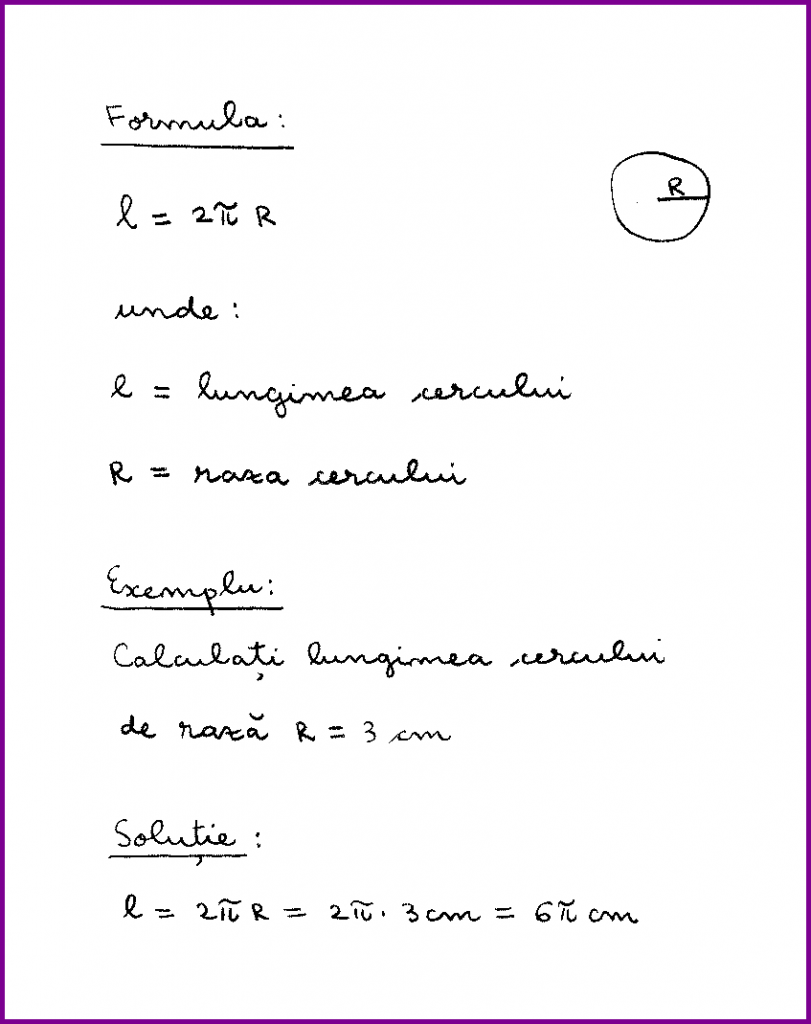 Formula:
l = 2π R
R
unde:
l = lungimea cercului
R = raza cercului
Exemplu:
Calculați lungimea cercului
de rază R = 3 cm
Soluție:
l = 2π R = 2π · 3 cm = 6π cm